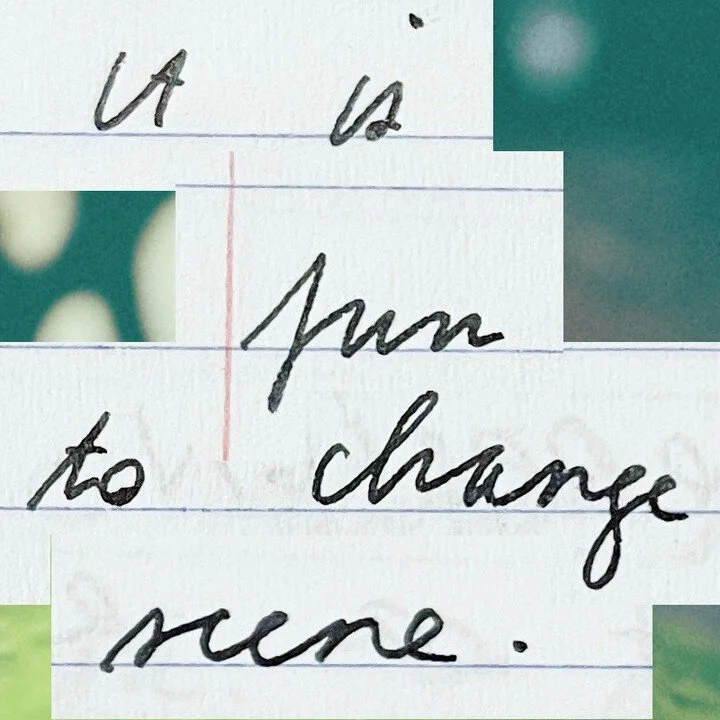 it is
fun
to change
scene.